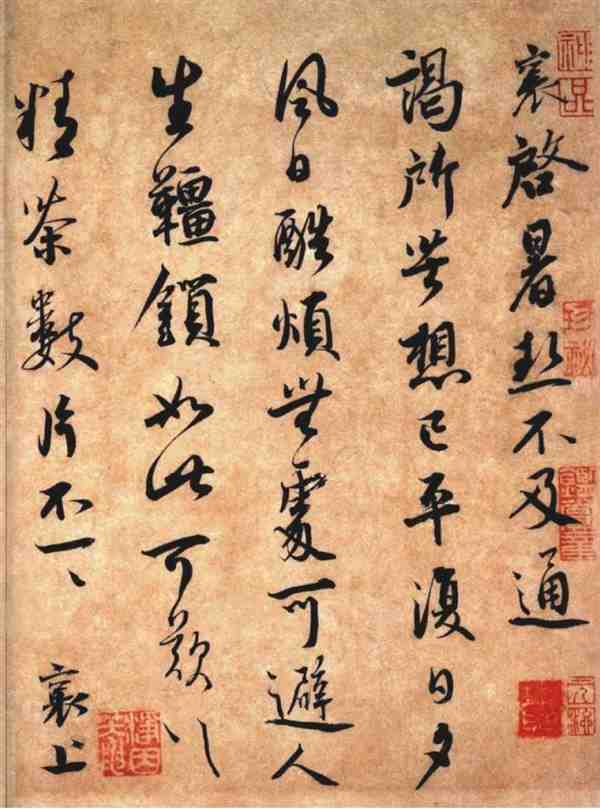 襄啓暑熱不及通
謁所苦想已平復日夕
風日酷煩無處可避人
生韁鎖如此可歎〻
精茶數片不一〻 襄上
神品